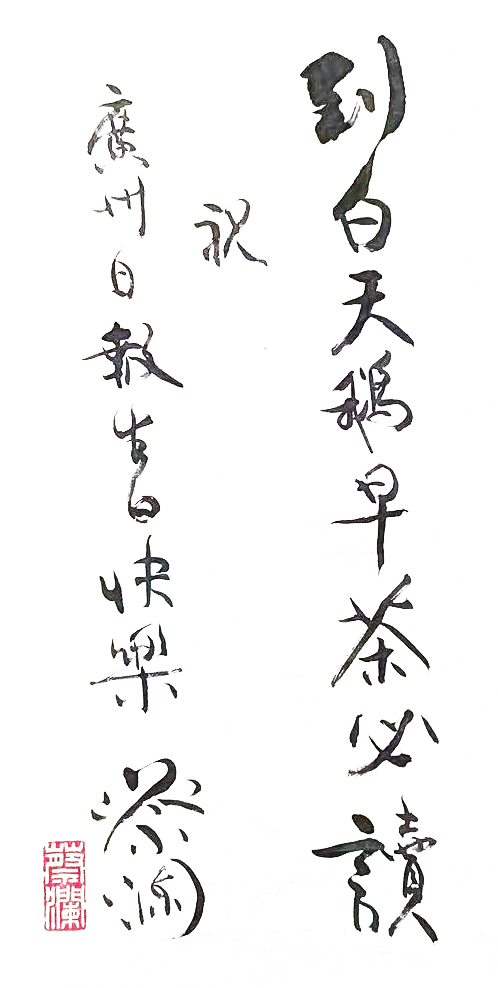 到白天鵝早茶必讀
祝
廣州日報生日快樂
蔡瀾
蔡瀾